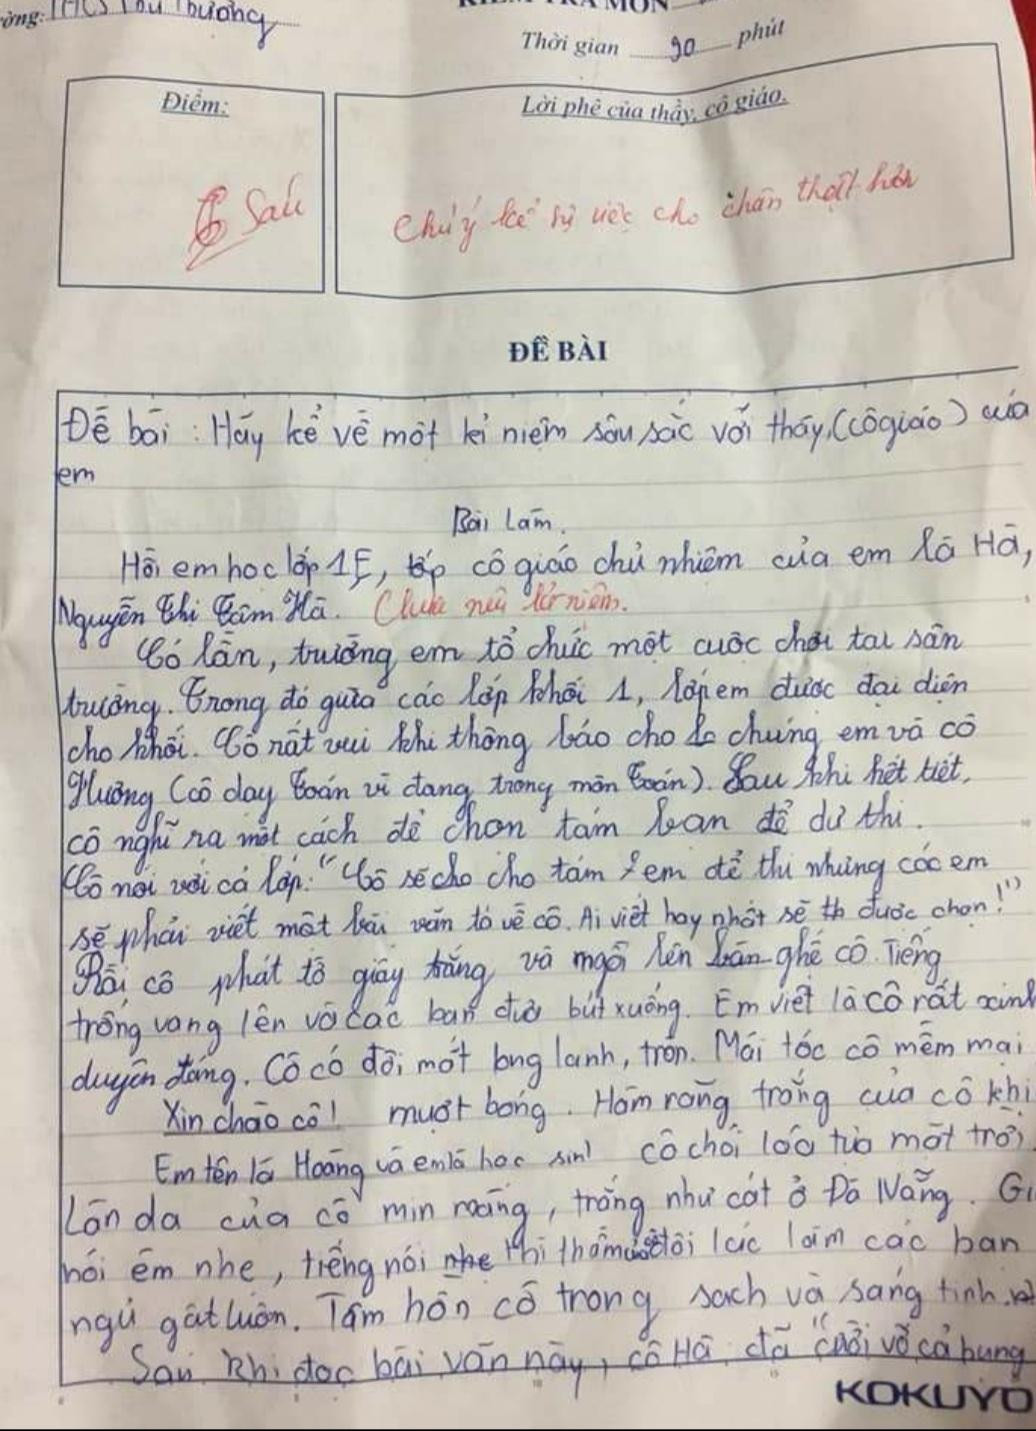 KIỂM TRA MÔN
Thời gian 90 phút
Điểm:
Lời phê của thầy, cô giáo.
6 Sáu
Chú ý kể sự việc cho chân thật hơn
ĐỀ BÀI
Đề bài : Hãy kể về một kỉ niệm sâu sắc với thầy,(cô giáo) của
em
Bài làm.
Hồi em học lớp 1E, cô giáo chủ nhiệm của em là Hà,
Nguyễn Thị Tâm Hà. Chưa nêu kỉ niệm.
Có lần, trường em tổ chức một cuộc chơi tại sân
trường. Trong đó giữa các lớp khối 1, lớp em được đại diện
cho khối. Cô rất vui khi thông báo cho chúng em và cô
Hường (cô dạy Toán vì đang trong môn Toán). Sau khi hết tiết,
cô nghĩ ra một cách để chọn tám bạn để dự thi.
Cô nói với cả lớp: "Cô sẽ cho cho tám em để thi nhưng các em
sẽ phải viết một bài văn tả về cô. Ai viết hay nhất sẽ được chọn!"
Rồi cô phát tờ giấy trắng và ngồi lên bàn ghế cô. Tiếng
trống vang lên và các bạn đưa bút xuống. Em viết là cô rất xinh
duyên dáng. Cô có đôi mắt long lanh, tròn. Mái tóc cô mềm mại
Xin chào cô! mượt bóng. Hàm răng trắng của cô khi
Em tên là Hoàng và em là học sinh cô chói lóa tựa mặt trời
Làn da của cô mịn màng, trắng như cát ở Đà Nẵng. Gi
nói êm nhẹ, tiếng nói thì thầm đôi lúc làm các bạn
ngủ gật luôn. Tâm hồn cô trong sạch và sáng tinh.
Sau khi đọc bài văn này, cô Hà đã "cười vỡ cả bụng
KOKUYO